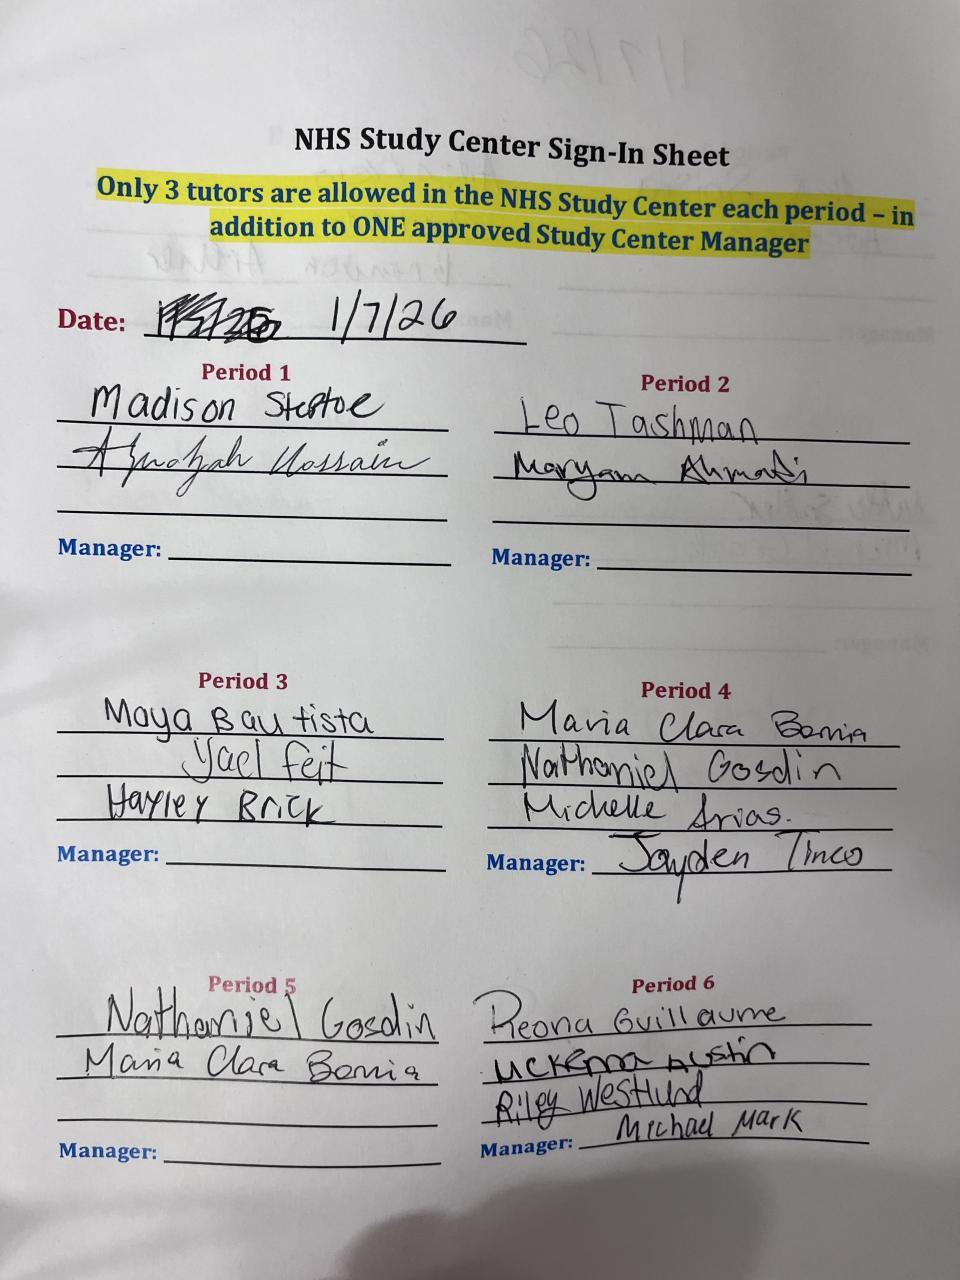 NHS Study Center Sign-In Sheet
Only 3 tutors are allowed in the NHS Study Center each period – in
addition to ONE approved Study Center Manager
Date: 1/7/26
Period 1
Madison Steptoe
Hossain
Manager:
Period 2
Leo Tashman
Maryam Ahmadi
Manager:
Period 3
Maya Bautista
Yael Feit
Hayley Brick
Manager:
Period 4
Maria Clara
Nathaniel Gosdin
Michelle Arias.
Manager: Jayden Tinco
Period 5
Nathaniel Gosdin
Maria Clara
Manager:
Period 6
Guillaume
McKenna Austin
Riley Westlund
Manager: Michael Mark